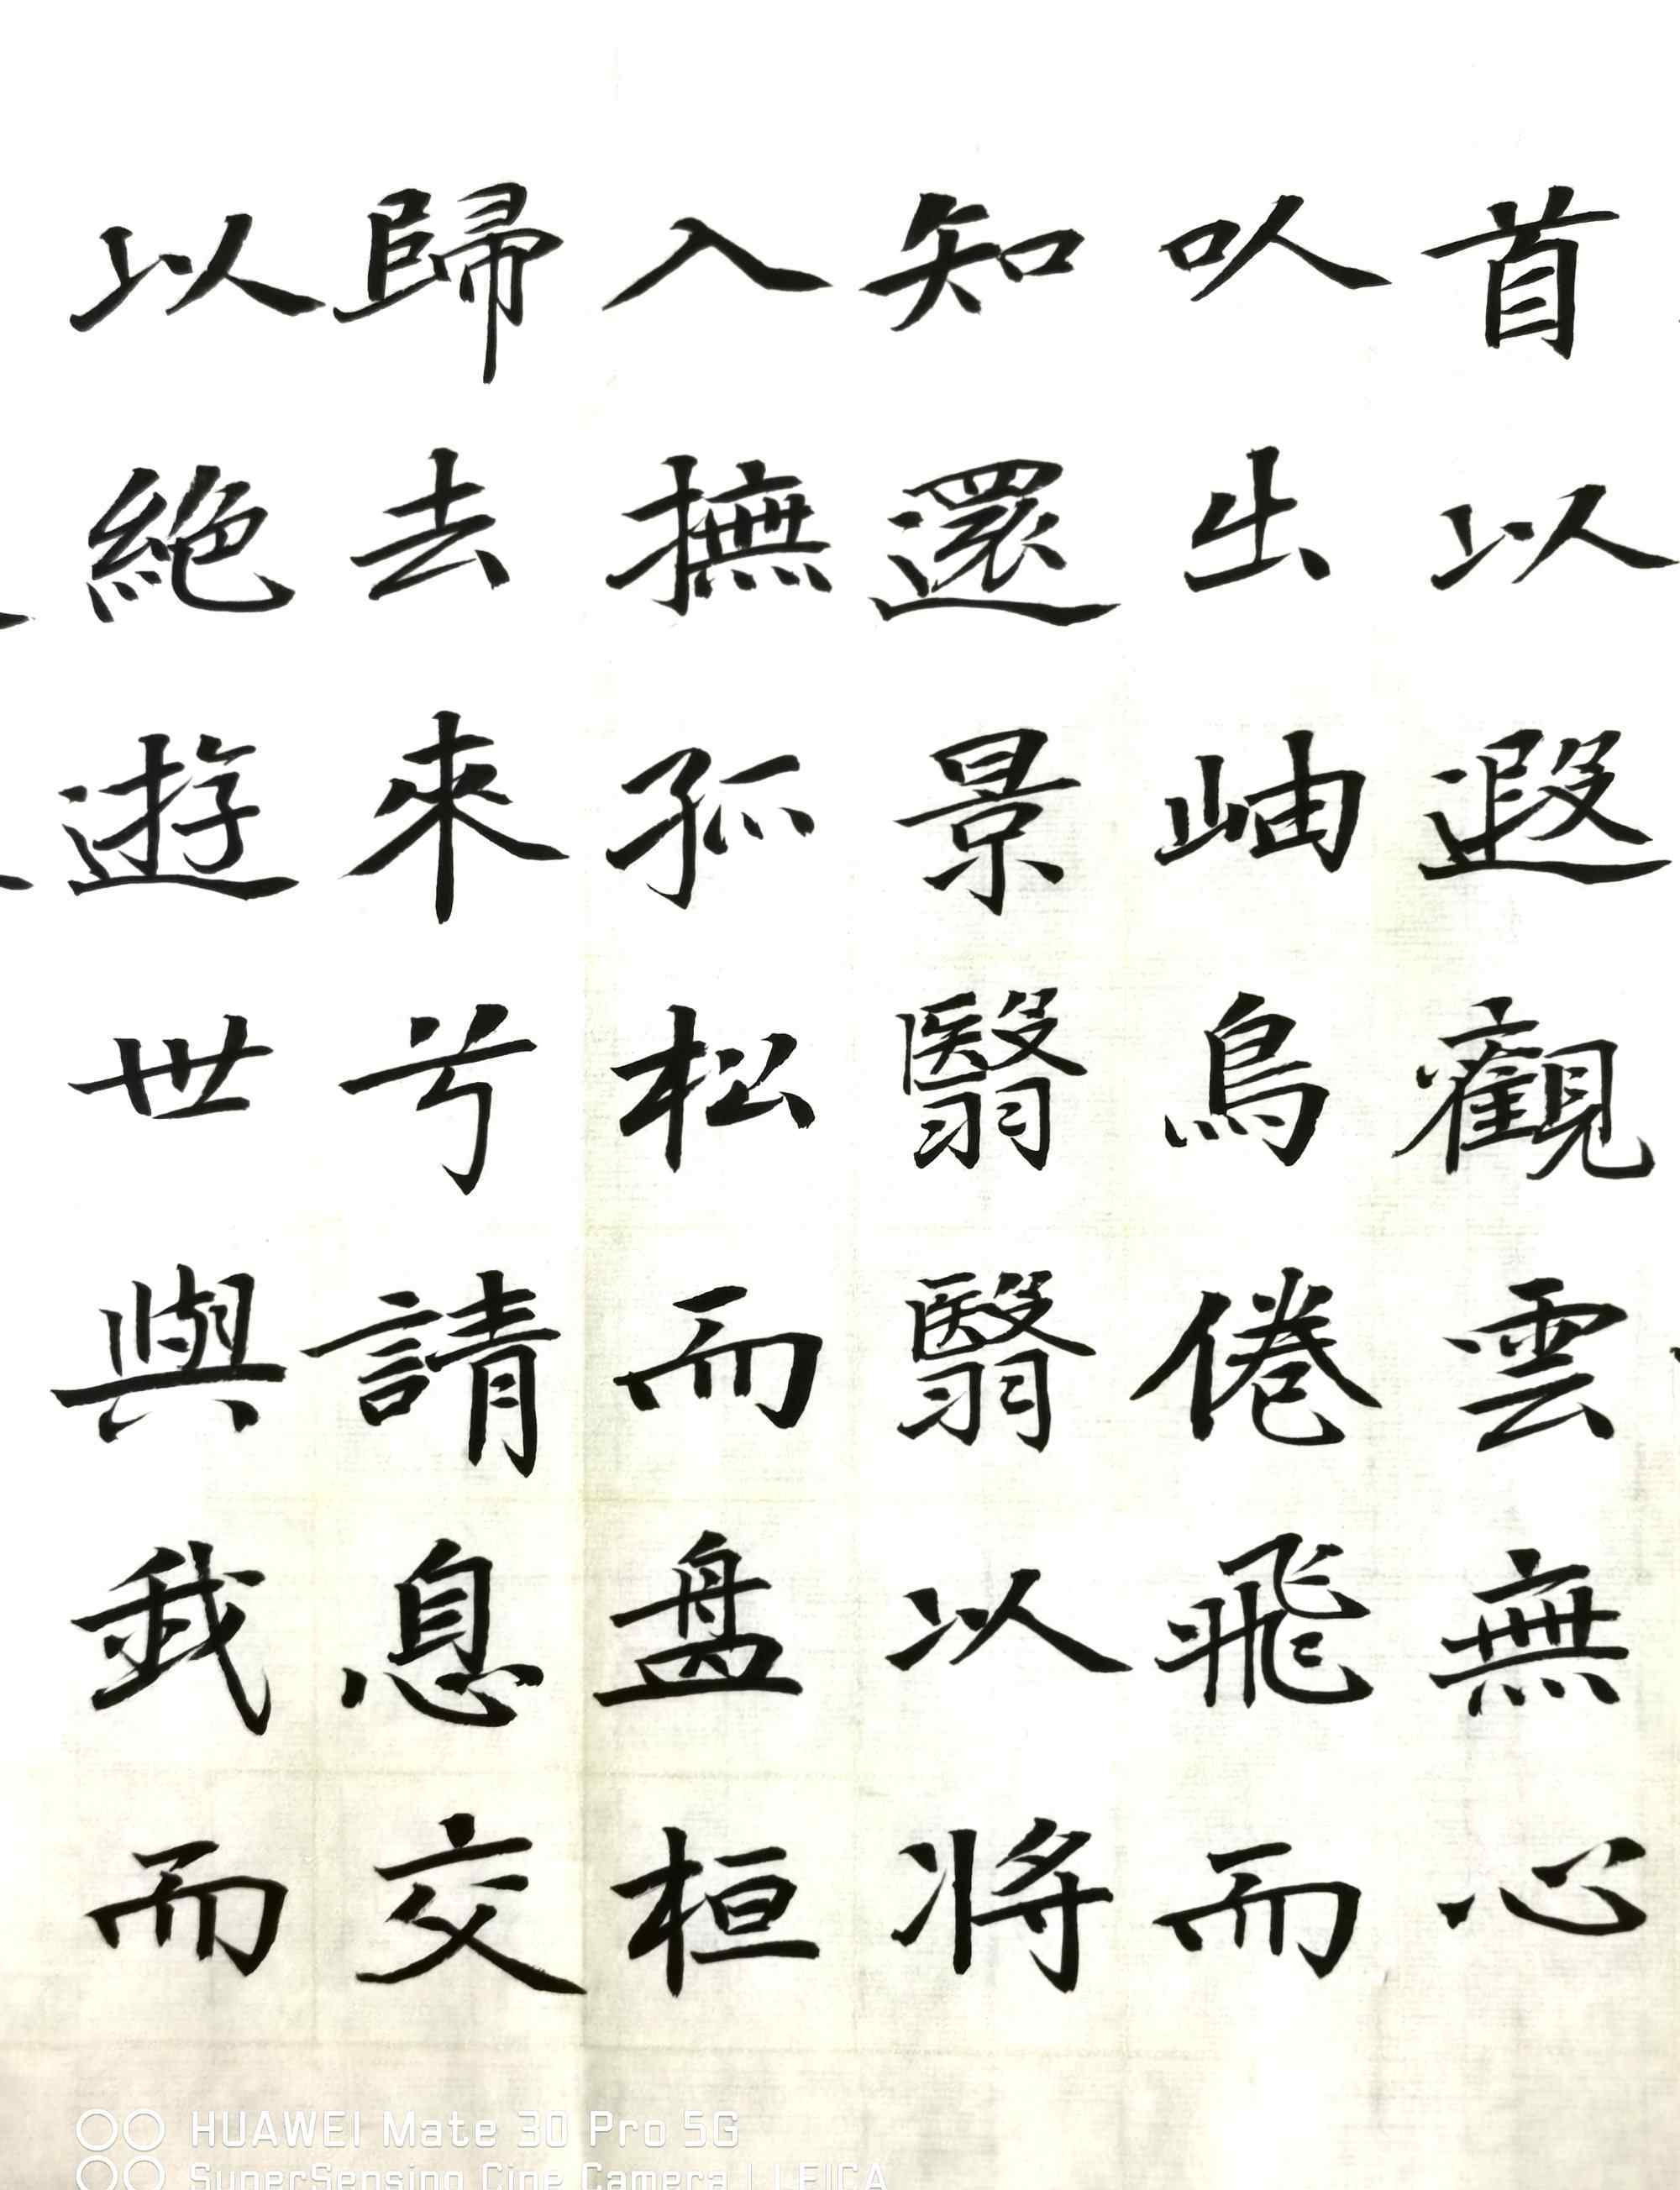 首以遐觀雲無心
㕥出岫鳥倦飛而
知還景翳翳以將
入撫孤松而盘桓
歸去來兮請息交
以絶遊世與我而
HUAWEI Mate 30 Pro 5G
SuperSensing Cine Camera | LEICA